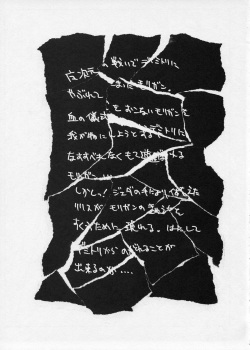 の戦いでデミトリに
やぶれて しまったモリガン。
血の儀式 をおこないモリガンを
我が物にしようとするデミトリに
なすすべもなくもて遊ばれる
モリガン…。
しかし! ジェダの手により
リリスが モリガンの
すくうために現れる。はたして
デミトリからのがれることが
出来るのか….